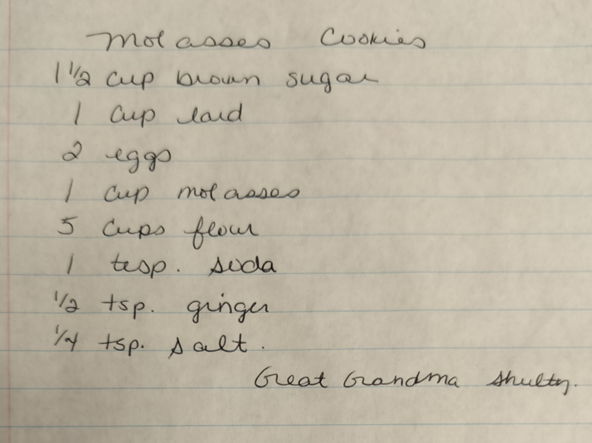 Molasses Cookies
1 1/2 cup brown sugar
1 cup lard
2 eggs
1 cup molasses
5 cups flour
1 tesp. soda
1/2 tsp. ginger
1/4 tsp. salt.
Great Grandma